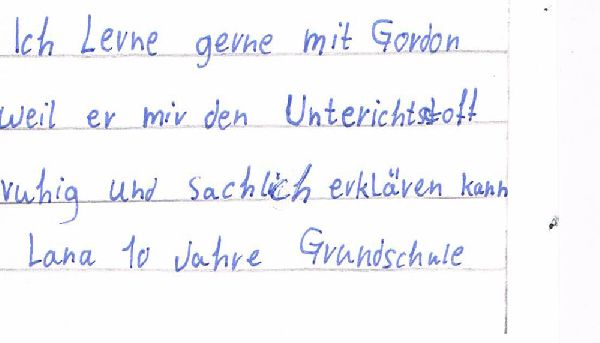 Ich Lerne gerne mit Gordon
weil er mir den Unterichtstoff
ruhig und sachlich erklären kann
Lana 10 Jahre Grundschule